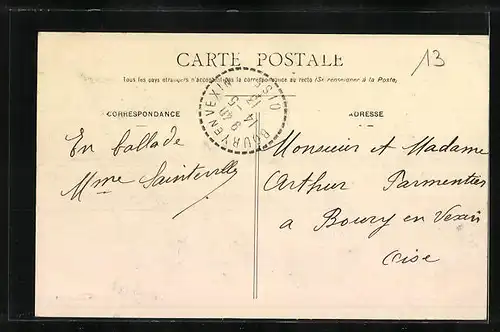 CARTE POSTALE
13
Tous les pays étrangers n'acceptent pas la correspondance au recto (Se renseigner à la Poste)
BOURY EN VEXIN
OISE
CORRESPONDANCE
ADRESSE
En ballade
Mme Sainteville
Monsieur et Madame
Arthur Parmentier
a Boury en Vexin
Oise